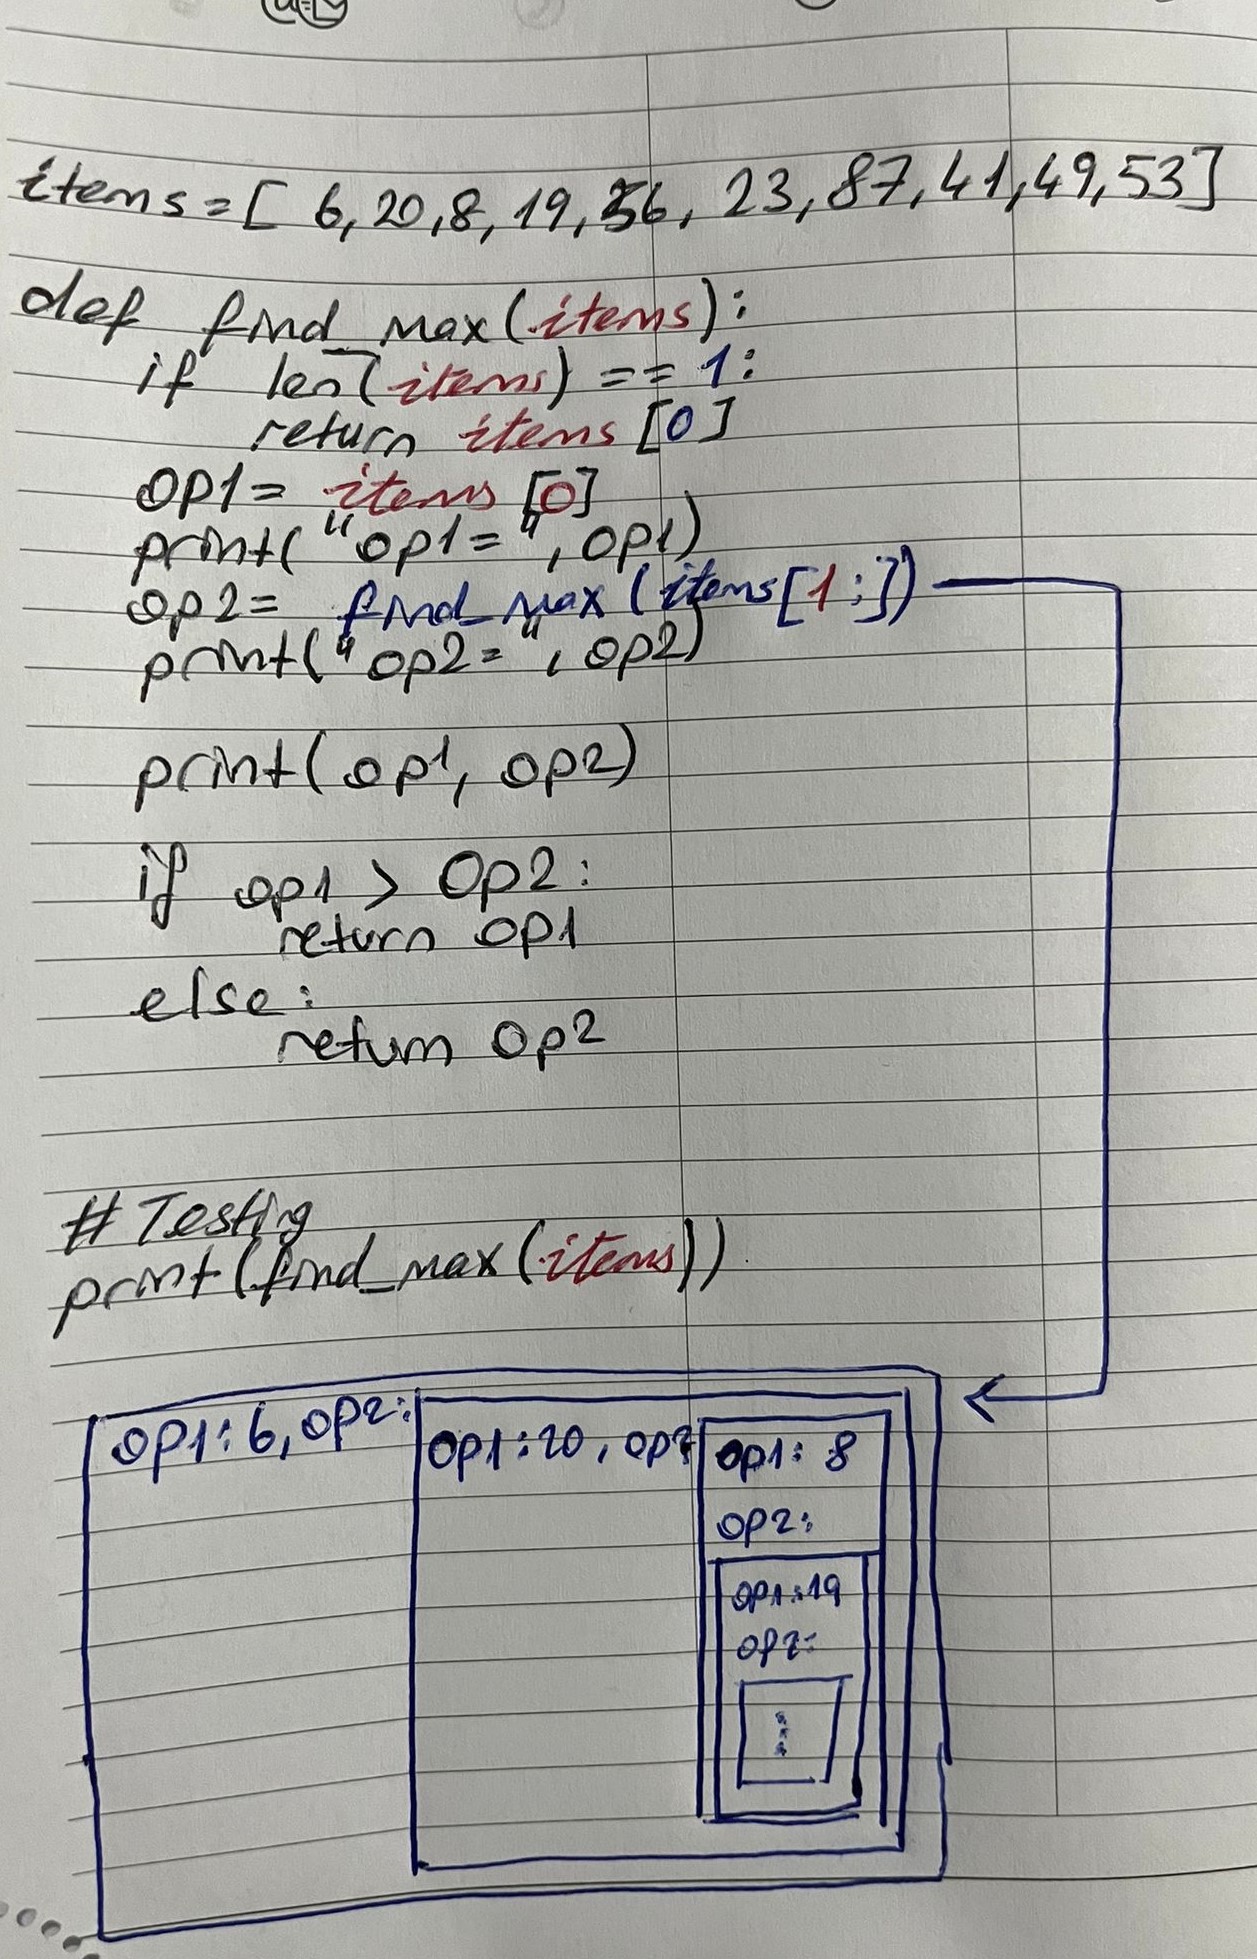 items = [ 6, 20, 8, 19, 56, 23, 87, 41, 49, 53]
def find_max(items):
if len(items) == 1:
return items [0]
op1 = items [0]
print("op1=", op1)
op2 = find_max (items[1:])
print("op2=", op2)
print(op1, op2)
if op1 > op2:
return op1
else:
return op2
# Testing
print(find_max(items))
op1:6, op2:
op1:20, op2
op1: 8
op2:
op1:19
op2: